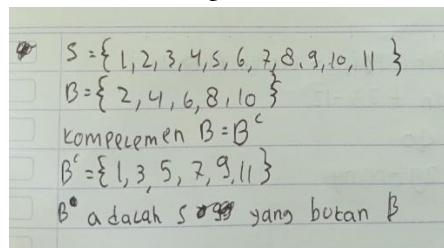 S = { 1, 2, 3, 4, 5, 6, 7, 8, 9, 10, 11 }
B = { 2, 4, 6, 8, 10 }
Kompelemen B = Bᶜ
Bᶜ = { 1, 3, 5, 7, 9, 11 }
Bᶜ adalah S yang bukan B